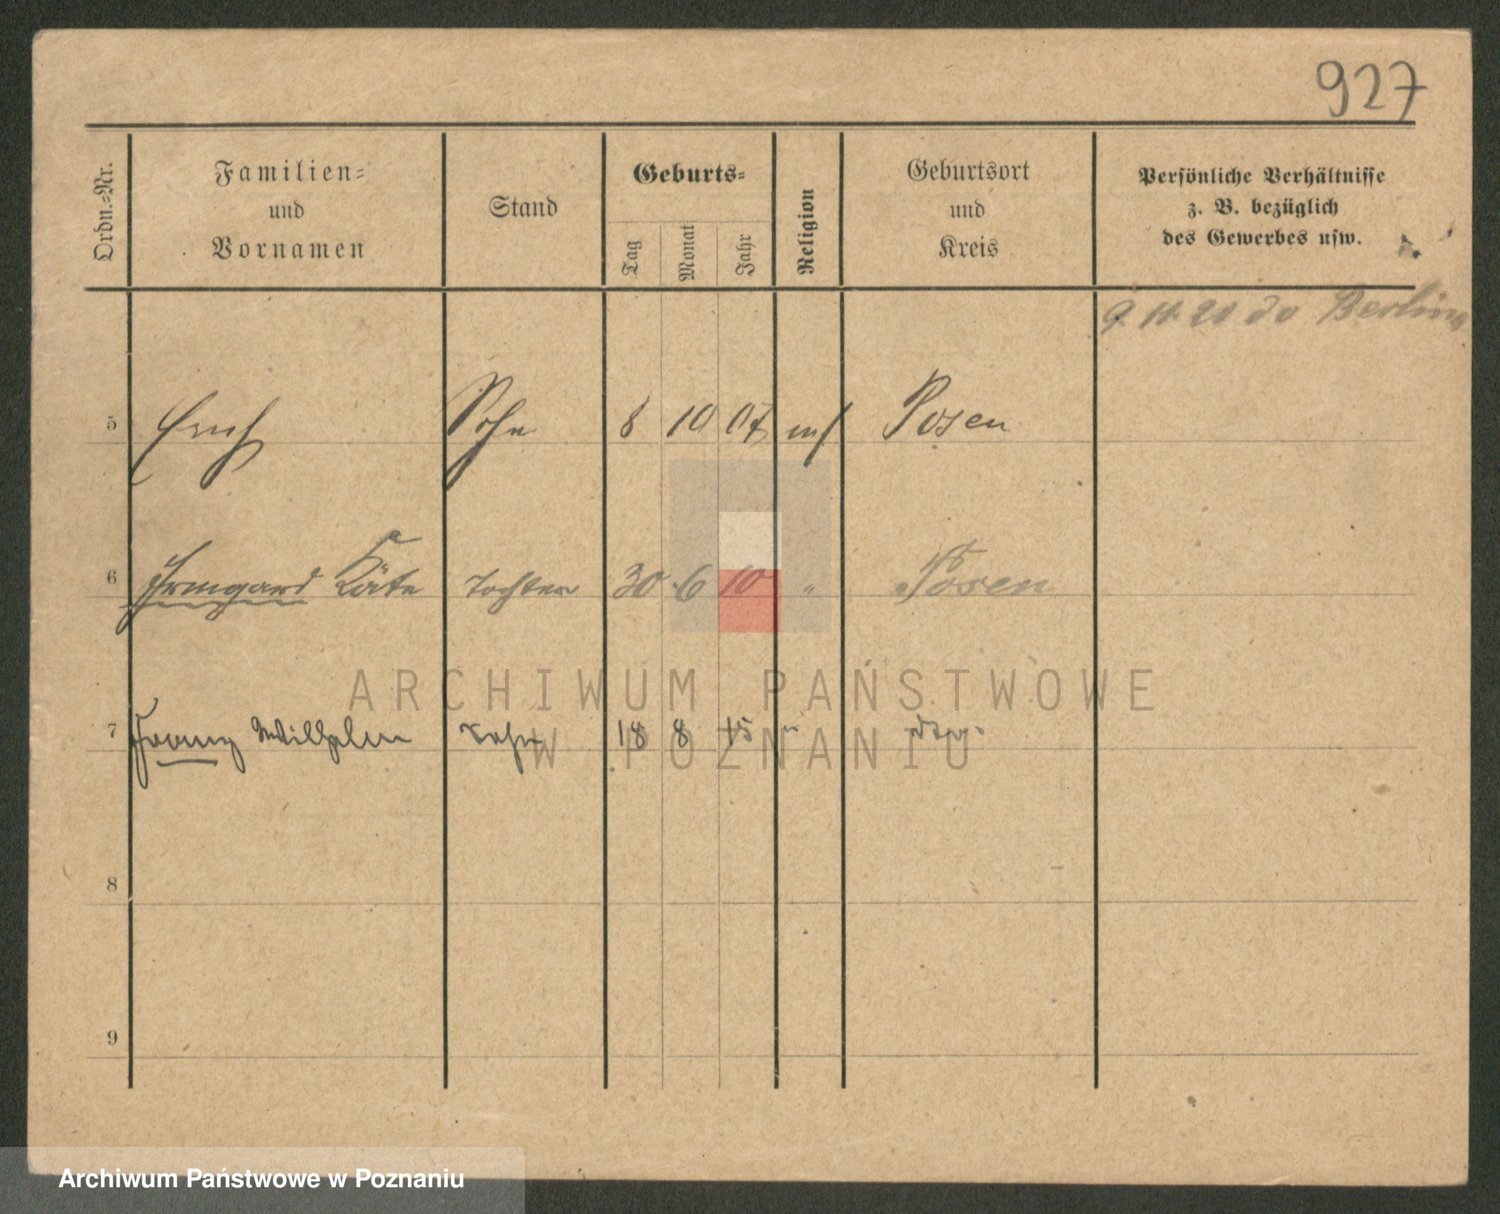 927
Ordn.-Nr.
Familien-
und
Vornamen
Stand
Geburts-
Tag
Monat
Jahr
Religion
Geburtsort
und
Kreis
Persönliche Verhältnisse
z. B. bezüglich
des Gewerbes usw.
9 11 20 do Berlin
5 Erich Sohn 8 10 07 Posen
6 Irmgard Käte Tochter 30 6 10 " Posen
7 Franz Wilhelm Sohn 18 8 15 "
8
9
ARCHIWUM PAŃSTWOWE
W POZNANIU
Archiwum Państwowe w Poznaniu